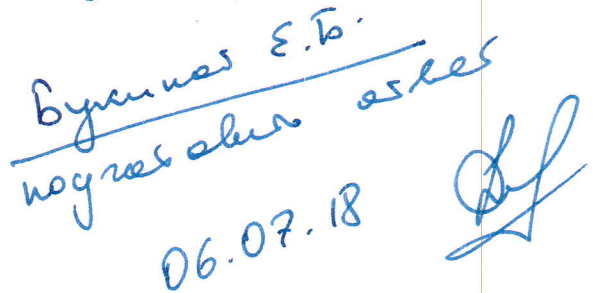 Букиной Е.Б.
подготовить ответ
06.07.18